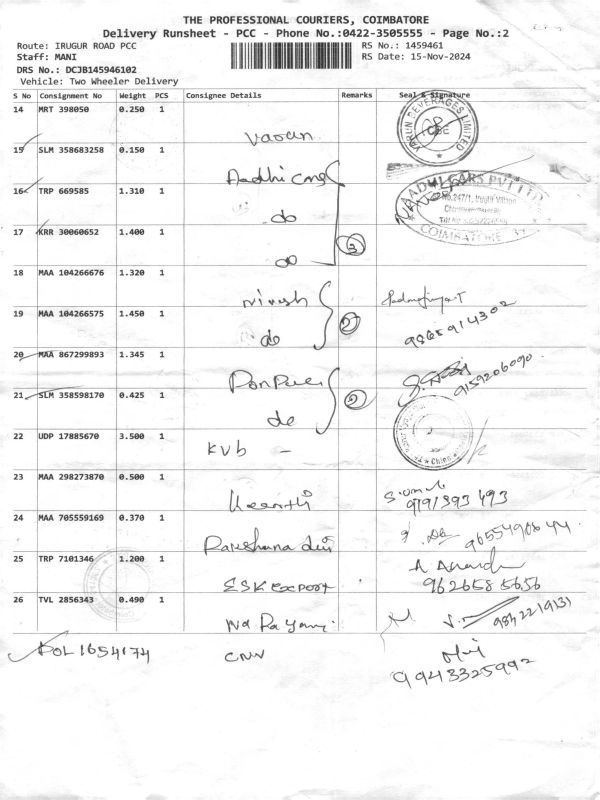 THE PROFESSIONAL COURIERS, COIMBATORE
Delivery Runsheet - PCC - Phone No.:0422-3505555 - Page No.:2
Route: IRUGUR ROAD PCC RS No.: 1459461
Staff: MANI RS Date: 15-Nov-2024
DRS No.: DCJB145946102
Vehicle: Two Wheeler Delivery
S No Consignment No Weight PCS Consignee Details Remarks Seal & Signature
14 MRT 398050 0.250 1 Varun VARUN BEVERAGES LIMITED CBE
15 SLM 358683258 0.150 1 Aadhi cars AADHI CARS PVT LTD
16 TRP 669585 1.310 1 do COIMBATORE
17 KRR 30060652 1.400 1 do 3
18 MAA 104266676 1.320 1 Nivash
19 MAA 104266575 1.450 1 do 2 9865914302
20 MAA 867299893 1.345 1 9159206090
21 SLM 358598170 0.425 1 do 2
22 UDP 17885670 3.500 1 KVb -
23 MAA 298273870 0.500 1 Keerthi
24 MAA 705559169 0.370 1
25 TRP 7101346 1.200 1 ESK Export A Anand
9626585656
26 TVL 2856343 0.490 1 9842219131
POL 1654174 CNN
9943325992